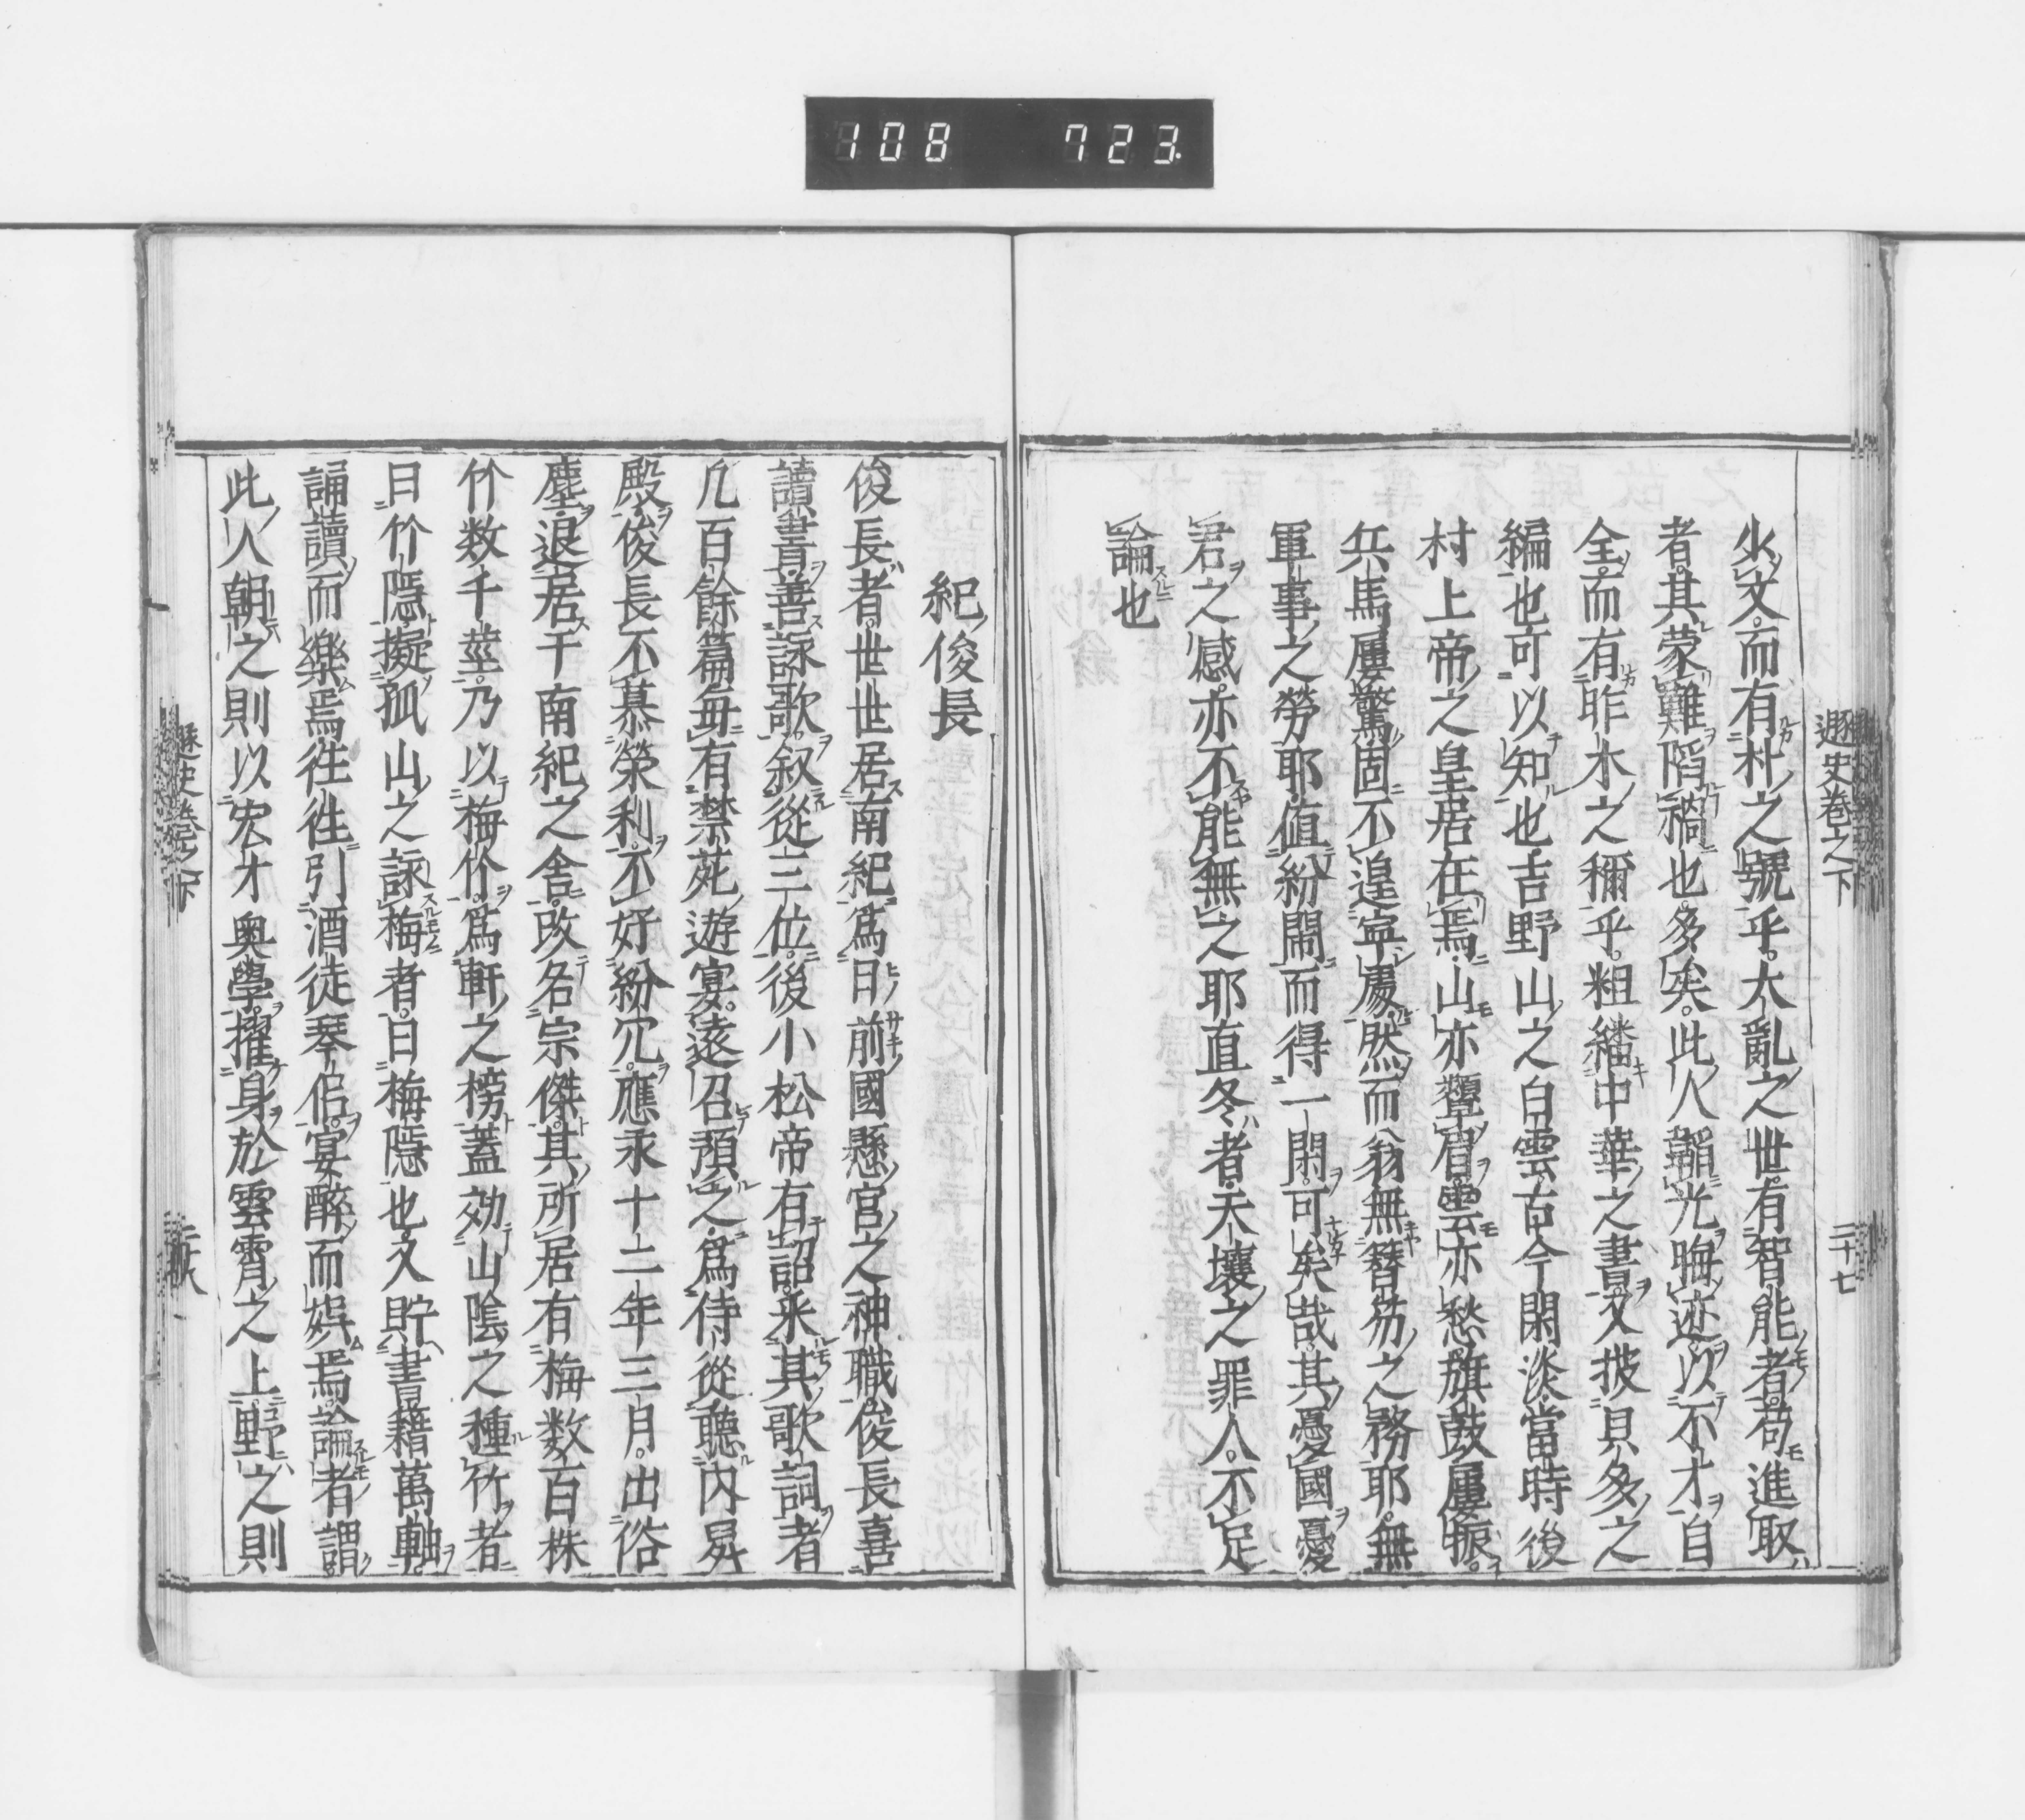 108 723
遯史卷之下
二十七
少文而有朴之號乎大亂之世有智能者苟進取
者其蒙難陷禍也多矣此人韜光晦迹以不才自
全而有昨木之稱乎粗繙中華之書又披貝多之
編也可以知也吉野山之白雲古今閑淡當時後
村上帝之皇居在焉山亦顰眉雲亦愁旗鼓屢振
兵馬屢驚固不遑寧處然而翁無簪笏之務耶無
軍事之勞耶值紛鬧而得一閑可矣哉其憂國憂
君之感亦不能無之耶直冬者天壤之罪人不足
論也
紀俊長
俊長者世世居南紀爲日前國懸宮之神職俊長喜
讀書善詠歌叙從三位後小松帝有詔釆其歌詞者
凢百餘篇每有禁苑遊宴遠召預之爲侍從聽內昇
殿俊長不慕榮利不好紛冗應永十二年三月出俗
塵退居于南紀之舍改名宗傑其所居有梅数百株
竹数千莖乃以梅竹爲軒之榜蓋効山陰之種竹者
曰竹隱擬孤山之詠梅者曰梅隱也又貯書籍萬軸
誦讀而樂焉徃徃引酒徒琴侶宴醉而娯焉論者謂
此人朝之則以宏才奥學擢身於雲霄之上野之則
遯史卷之下